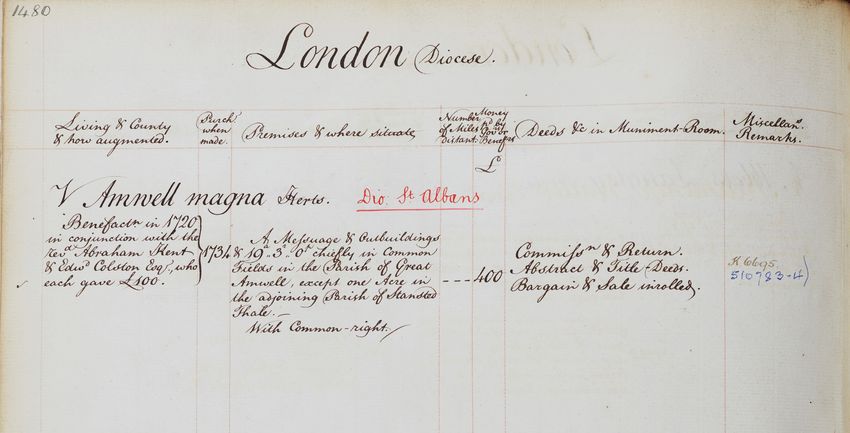 1480
London Diocese.
Living & County
& how augmented.
Purch.
when
made.
Premises & where situate,
Number
of Miles
Distant.
Money
pd by
Govrs or
Benefrs
£
Deeds &c in Muniment-Room.
Miscellans.
Remarks.
V Amwell magna Herts. Dio: St Albans
Benefactn in 1720
in conjunction with the
Revd Abraham Kent
& Edwd Colston Esqr, who
each gave £100.
1734
A Messuage & Outbuildings
& 19a. 3. 0r chiefly in Common
Fields in the Parish of Great
Amwell, except one Acre in
the adjoining Parish of Stansted
Thale.—
With Common-right.
---400
Commissn & Return.
Abstract & Title Deeds.
Bargain & Sale inrolled.
K6695
510783-4)